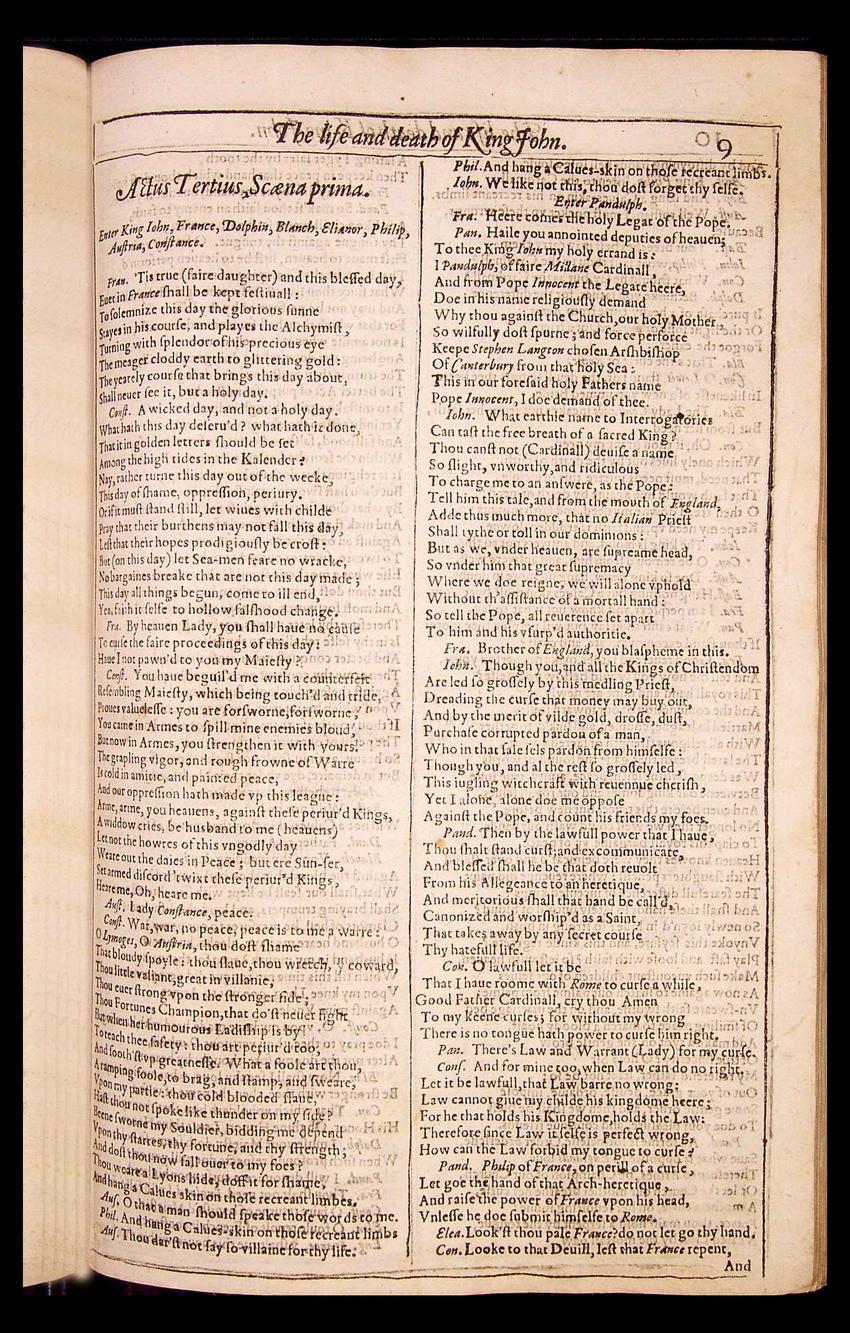 The life and death of King John.
9
Actus Tertius, Scæna prima.
Enter King Iohn, France, Dolphin, Blanch, Elianor, Philip,
Austria, Constance.
Fran. 'Tis true (faire daughter) and this blessed day,
Euer in France shall be kept festiuall:
To solemnize this day the glorious sunne
Stayes in his course, and playes the Alchymist,
Turning with splendor of his precious eye
The meager cloddy earth to glittering gold:
The yearely course that brings this day about,
Shall neuer see it, but a holy day.
Const. A wicked day, and not a holy day.
What hath this day deseru'd? what hath it done,
That it in golden letters should be set
Among the high tides in the Kalender?
Nay, rather turne this day out of the weeke,
This day of shame, oppression, periury.
Or if it must stand still, let wiues with childe
Pray that their burthens may not fall this day,
Lest that their hopes prodigiously be crost:
But (on this day) let Sea-men feare no wracke,
No bargaines breake that are not this day made;
This day all things begun, come to ill end,
Yea, faith it selfe to hollow falshood change.
Fra. By heauen Lady, you shall haue no cause
To curse the faire proceedings of this day:
Haue I not pawn'd to you my Maiesty?
Const. You haue beguil'd me with a counterfeit
Resembling Maiesty, which being touch'd and tride,
Proues valuelesse: you are forsworne, forsworne,
You came in Armes to spill mine enemies bloud,
But now in Armes, you strengthen it with yours.
The grapling vigor, and rough frowne of Warre
Is cold in amitie, and painted peace,
And our oppression hath made vp this league:
Arme, arme, you heauens, against these periur'd Kings,
A widdow cries, be husband to me (heauens)
Let not the howres of this vngodly day
Weare out the daies in Peace; but ere Sun-set,
Set armed discord 'twixt these periur'd Kings,
Heare me, Oh, heare me.
Aust. Lady Constance, peace.
Const. War, war, no peace, peace is to me a warre:
O Lymoges, O Austria, thou dost shame
That bloudy spoyle: thou slaue, thou wretch, ẏ coward,
Thou little valiant, great in villanie,
Thou euer strong vpon the stronger side;
Thou Fortunes Champion, that do'st neuer fight
But when her humourous Ladiship is by
To teach thee safety: thou art periur'd too,
And sooth'st vp greatnesse. What a foole art thou,
A ramping foole, to brag, and stamp, and sweare,
Vpon my partie: thou cold blooded slaue,
Hast thou not spoke like thunder on my side?
Beene sworne my Souldier, bidding me depend
Vpon thy starres, thy fortune, and thy strength,
And dost thou now fall ouer to my foes?
Thou weare a Lyons hide, doff it for shame,
And hang a Calues skin on those recreant limbes.
Aus. O that a man should speake those words to me.
Phil. And hang a Calues-skin on those recreant limbs
Aus. Thou dar'st not say so villaine for thy life.
Phil. And hang a Calues-skin on those recreant limbs.
Iohn. We like not this, thou dost forget thy selfe.
Enter Pandulph.
Fra. Heere comes the holy Legat of the Pope.
Pan. Haile you annointed deputies of heauen;
To thee King Iohn my holy errand is:
I Pandulph, of faire Millane Cardinall,
And from Pope Innocent the Legate heere,
Doe in his name religiously demand
Why thou against the Church, our holy Mother,
So wilfully dost spurne; and force perforce
Keepe Stephen Langton chosen Arshbishop
Of Canterbury from that holy Sea:
This in our foresaid holy Fathers name
Pope Innocent, I doe demand of thee.
Iohn. What earthie name to Interrogatories
Can tast the free breath of a sacred King?
Thou canst not (Cardinall) deuise a name
So slight, vnworthy, and ridiculous
To charge me to an answere, as the Pope:
Tell him this tale, and from the mouth of England,
Adde thus much more, that no Italian Priest
Shall tythe or toll in our dominions:
But as we, vnder heauen, are supreame head,
So vnder him that great supremacy
Where we doe reigne, we will alone vphold
Without th'assistance of a mortall hand:
So tell the Pope, all reuerence set apart
To him and his vsurp'd authoritie.
Fra. Brother of England, you blaspheme in this.
Iohn. Though you, and all the Kings of Christendom
Are led so grossely by this medling Priest,
Dreading the curse that money may buy out,
And by the merit of vilde gold, drosse, dust,
Purchase corrupted pardon of a man,
Who in that sale sels pardon from himselfe:
Though you, and al the rest so grossely led,
This iugling witchcraft with reuennue cherish,
Yet I alone, alone doe me oppose
Against the Pope, and count his friends my foes.
Pand. Then by the lawfull power that I haue,
Thou shalt stand curst, and excommunicate,
And blessed shall he be that doth reuolt
From his Allegeance to an heretique,
And meritorious shall that hand be call'd,
Canonized and worship'd as a Saint,
That takes away by any secret course
Thy hatefull life.
Con. O lawfull let it be
That I haue roome with Rome to curse a while,
Good Father Cardinall, cry thou Amen
To my keene curses; for without my wrong
There is no tongue hath power to curse him right.
Pan. There's Law and Warrant (Lady) for my curse.
Cons. And for mine too, when Law can do no right,
Let it be lawfull, that Law barre no wrong:
Law cannot giue my childe his kingdome heere;
For he that holds his Kingdome, holds the Law:
Therefore since Law it selfe is perfect wrong,
How can the Law forbid my tongue to curse?
Pand. Philip of France, on perill of a curse,
Let goe the hand of that Arch-heretique,
And raise the power of France vpon his head,
Vnlesse he doe submit himselfe to Rome.
Elea. Look'st thou pale France? do not let go thy hand.
Con. Looke to that Deuill, lest that France repent,
And